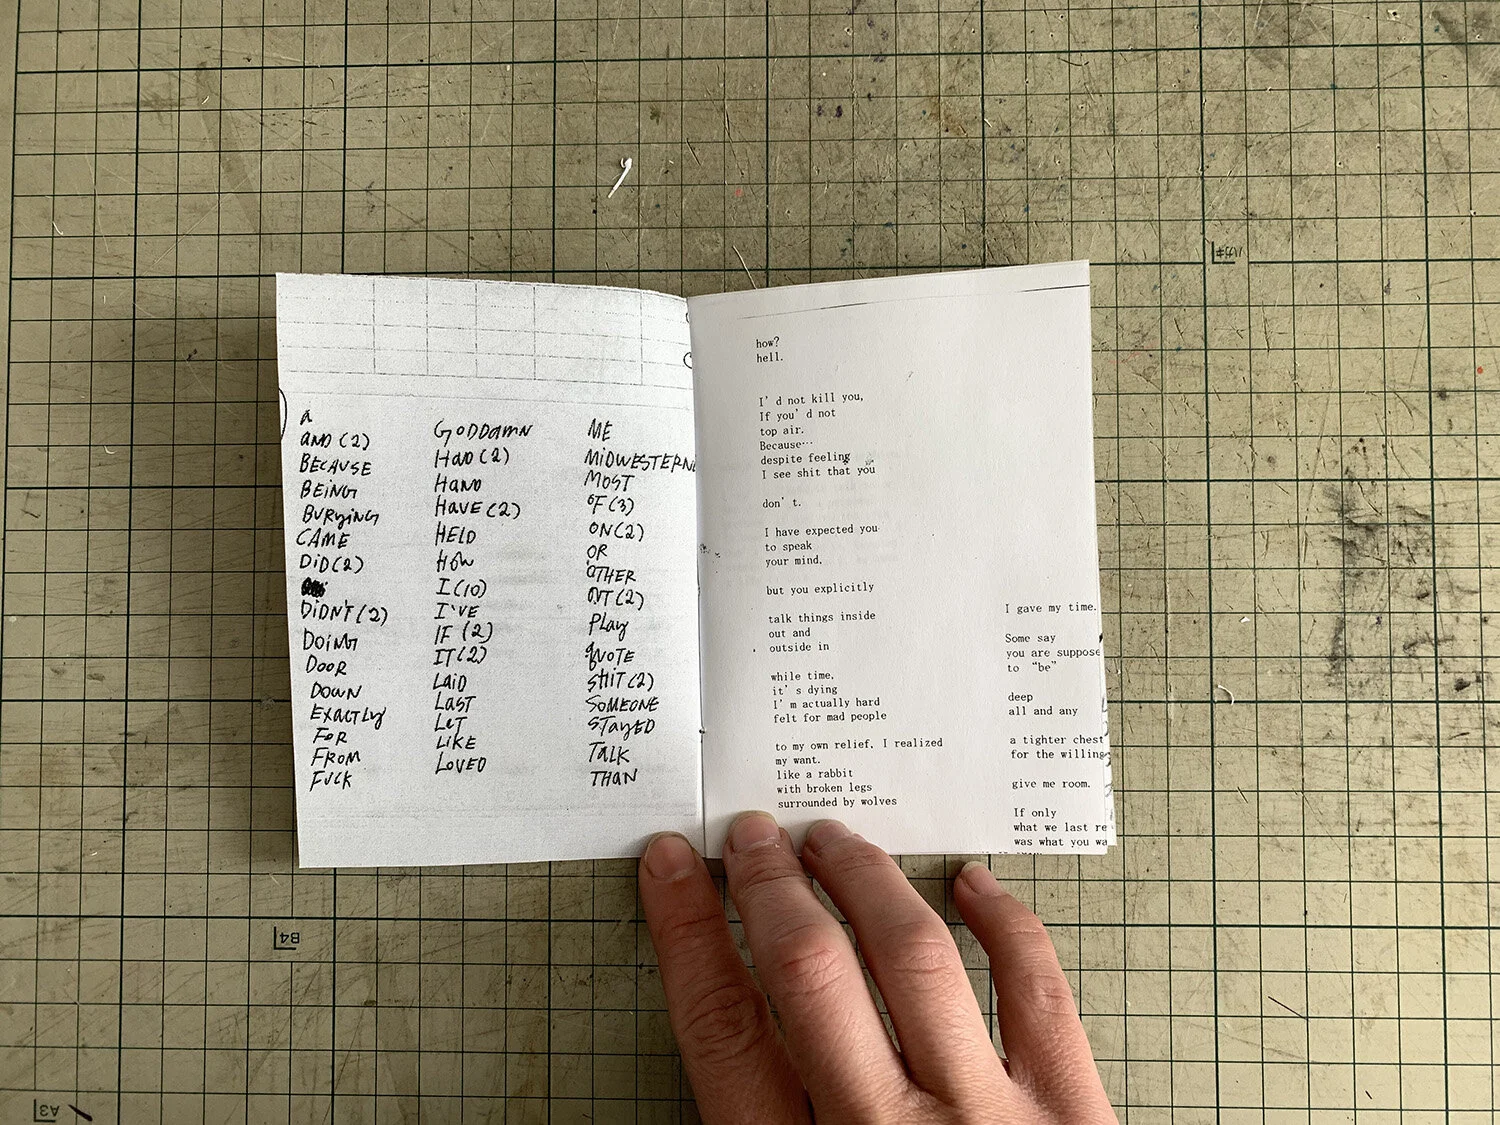 A
AND (2)
BECAUSE
BEING
BURYING
CAME
DID (2)
DIDN'T (2)
DOING
DOOR
DOWN
EXACTLY
FOR
FROM
FUCK
GODDAMN
HAD (2)
HAND
HAVE (2)
HELD
HOW
I (10)
I'VE
IF (2)
IT (2)
LAID
LAST
LET
LIKE
LOVED
ME
MIDWESTERN
MOST
OF (3)
ON (2)
OR
OTHER
(2)
PLAY
QUOTE
SHIT (2)
SOMEONE
STAYED
TALK
THAN
how?
hell.
I'd not kill you,
If you'd not
top air.
Because…
despite feeling
I see shit that you
don't.
I have expected you
to speak
your mind.
but you explicitly
talk things inside
out and
outside in
while time.
it's dying
I'm actually hard
felt for mad people
to my own relief. I realized
my want.
like a rabbit
with broken legs
surrounded by wolves
I gave my time.
Some say
you are suppose
to “be”
deep
all and any
a tighter chest
for the willing
give me room.
If only
what we last re
was what you wa
B4
A3